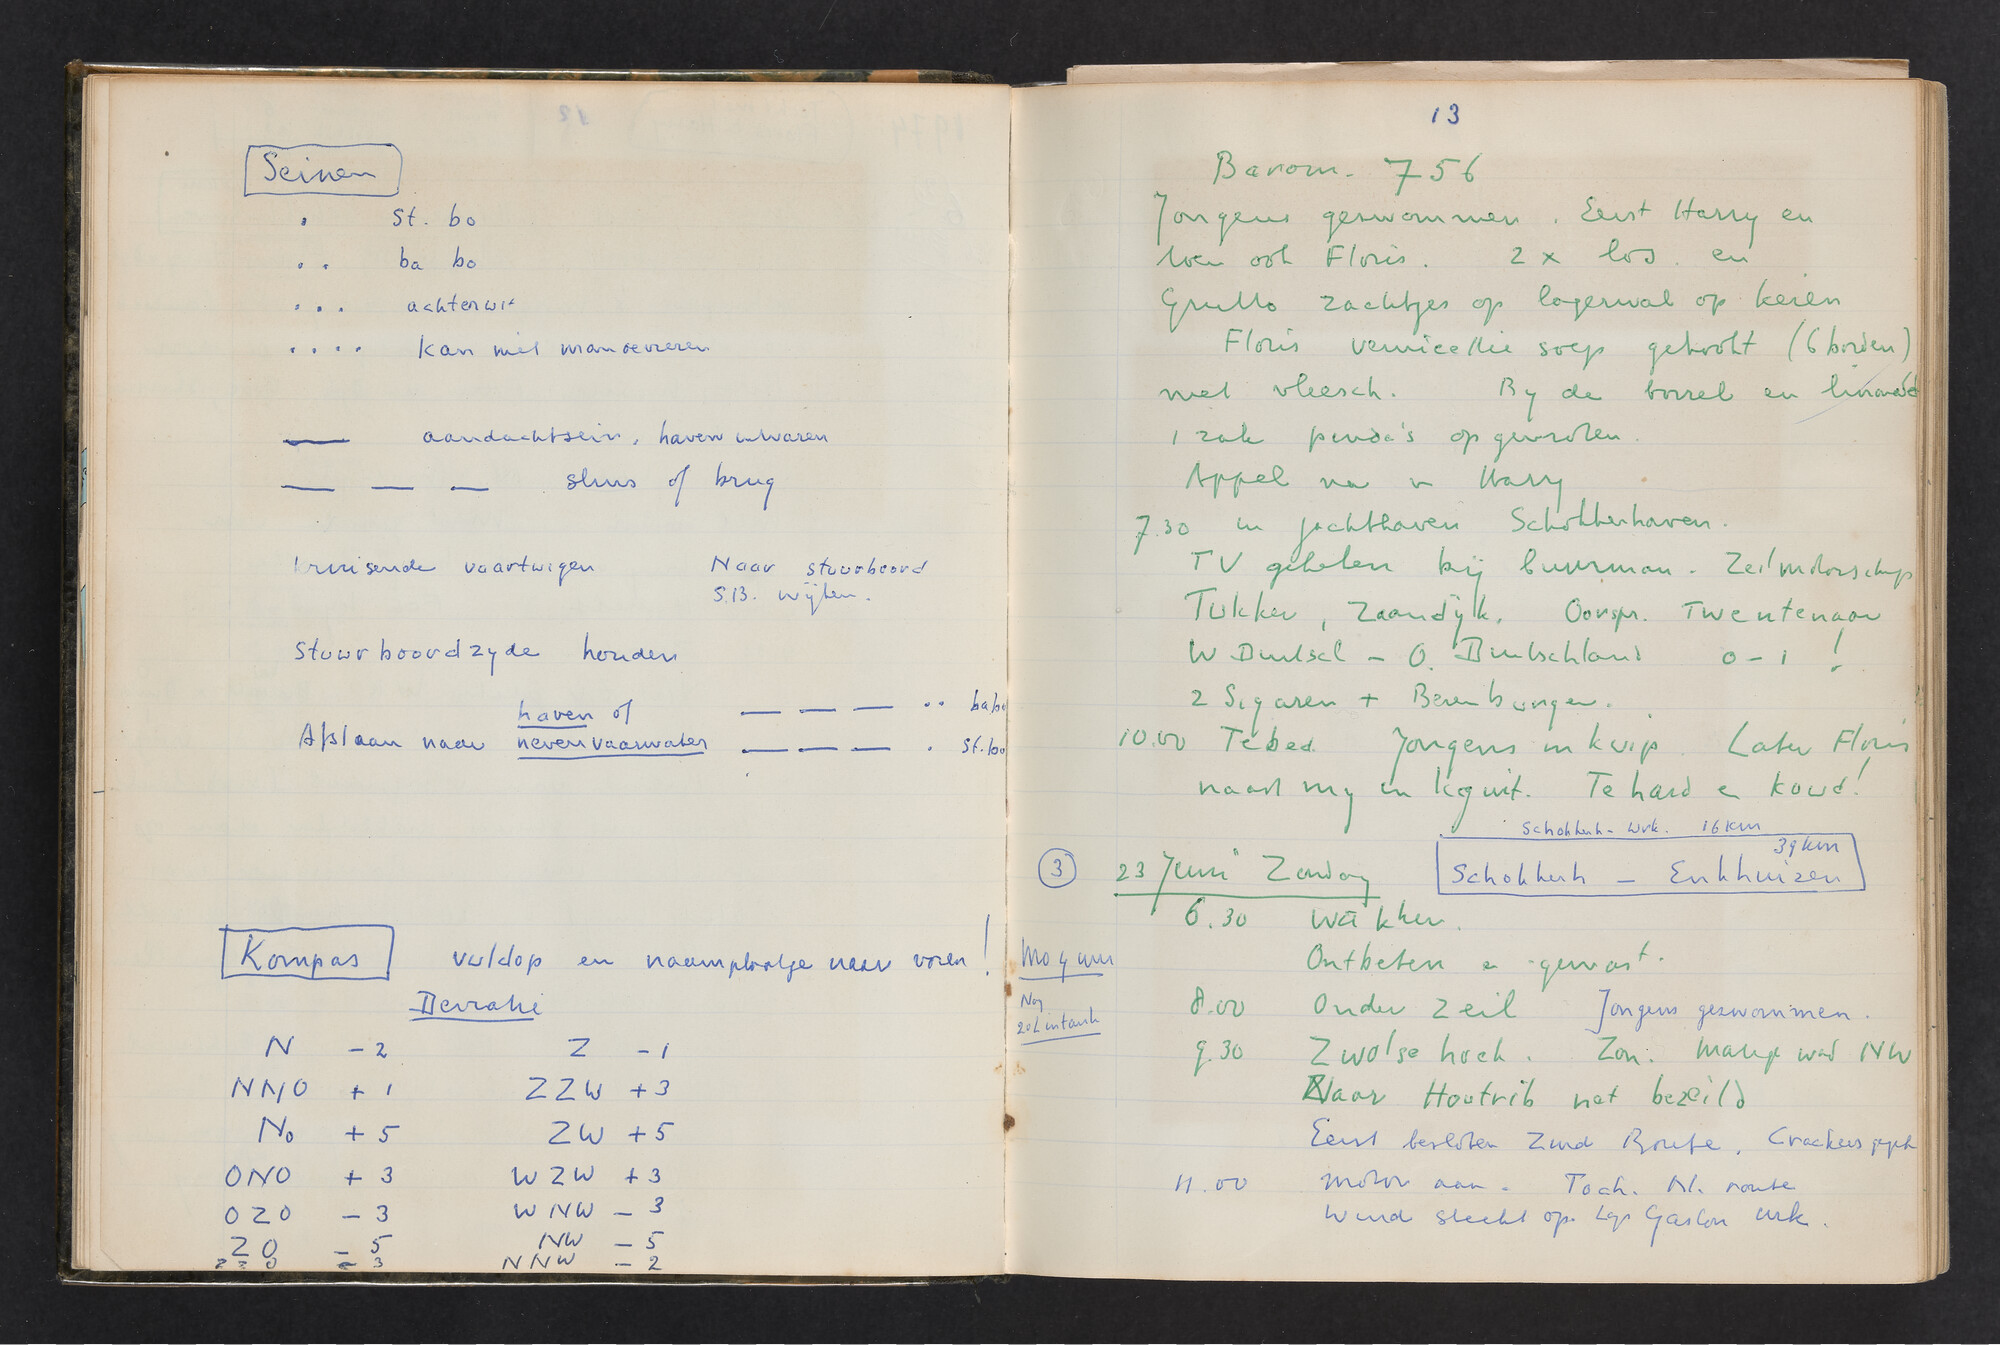 Seinen
. St. bo
. . ba bo
. . . achteruit
. . . . Kan niet manoevreren
— aandachtsein, haven invaren
— — — sluis of brug
Kruisende vaartuigen Naar stuurboord
S.B. wijken.
Stuurboordzyde houden
haven of — — — . . babo
Afslaan naar nevenvaarwater — — — . st.bo
Kompas vuldop en naamplaatje naar voren!
Deviatie
N - 2 Z - 1
NNO + 1 ZZW + 3
No + 5 ZW + 5
ONO + 3 WZW + 3
OZO - 3 WNW - 3
ZO - 5 NW - 5
ZZO - 3 NNW - 2
13
Barom. 756
Jongens geswommen. Eerst Harry en
toen ook Floris. 2 x los en
Grutto zachtjes op lagerwal op keien
Floris vermicellie soep gekookt (6 borden)
met vleesch. By de borrel en limonade
1 zak pinda's opgevreten.
Appel na v Harry
7.30 in jachthaven Schokkerhaven.
TV gekeken bij buurman. Zeilmotorschip
Tukker, Zaandyk. Oorspr. Twentenaar
W Duitsl - O. Duitschland 0 - 1 !
2 Sigaren + Berenburger.
10.00 Te bed. Jongens in kuip Later Floris
naast my in kajuit. Te hard en koud!
Schokkerh - Urk. 16 km
39 km
3 23 Juni Zondag Schokkerh - Enkhuizen
6.30 Wakker.
Ontbeten en gewast.
Nog
20 L in tank
8.00 Onder Zeil Jongens geswommen.
9.30 Zwolse hoek. Zon. Matige wind NW
Naar Houtrib net bezeild
Eerst besloten Zuid Route. Crackers
11.00 Motor aan. Toch. N. route
Wind slecht op. Urk.